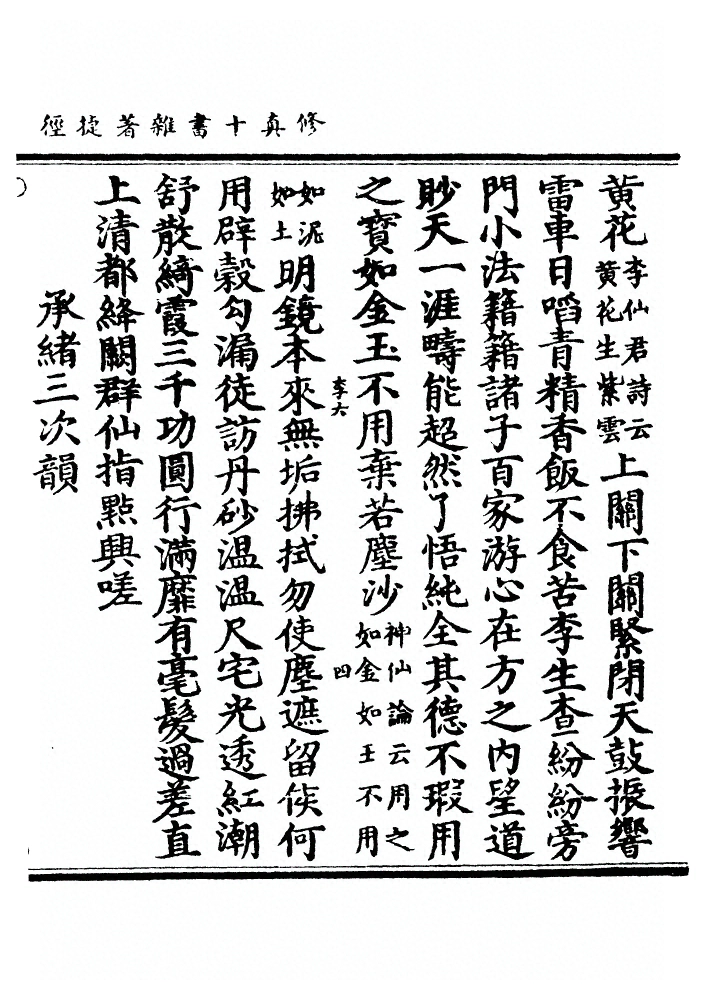 修真十書雜著捷徑
黄花李仙君詩云黄花生紫雲上關下關緊閉天鼓振響
雷車日啗青精香飯不食苦李生查紛紛旁
門小法籍籍諸子百家游心在方之内望道
眇天一涯疇能超然了悟純全其德不瑕用
之寶如金玉不用棄若塵沙神仙論云用之如金如玉不用
李六 四
如泥如土明鏡本來無垢拂拭勿使塵遮留侯何
用辟穀勾漏徒訪丹砂温温尺宅光透紅潮
舒散綺霞三千功圓行滿靡有毫髮過差直
上清都絳闕群仙指點興嗟
承緒三次韻